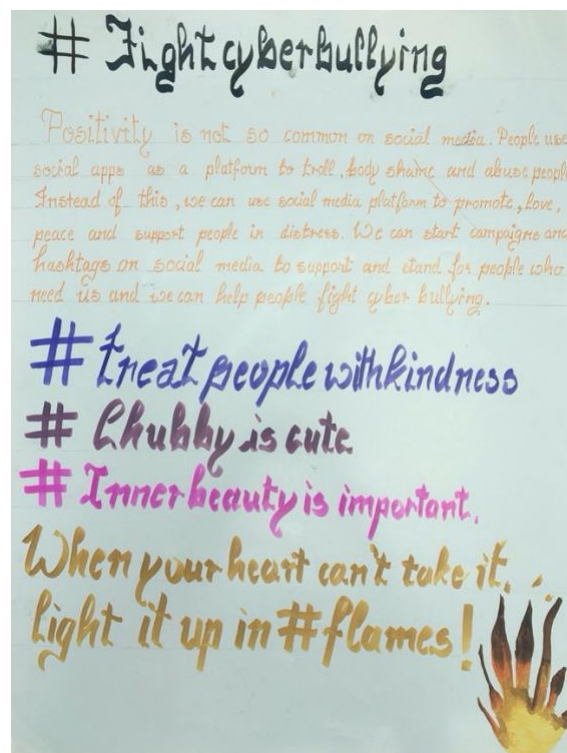 # Fight cyberbullying
Positivity is not so common on social media. People use
social apps as a platform to troll, body shame and abuse people
Instead of this, we can use social media platform to promote, love,
peace and support people in distress. We can start campaigns and
hashtags on social media to support and stand for people who
need us and we can help people fight cyber bullying.
# treat people with kindness
# Chubby is cute
# Inner beauty is important.
When your heart can't take it. . .
light it up in #flames!